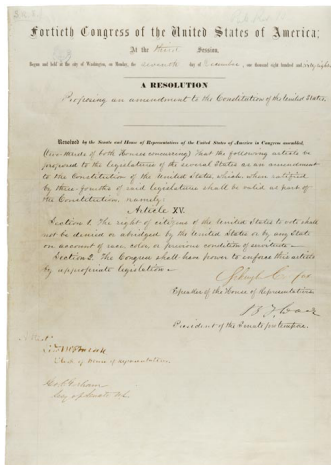 Fortieth Congress of the United States of America;
At the third Session,
Begun and held at the city of Washington, on Monday, the seventh day of December, one thousand eight hundred and sixty-eight
A RESOLUTION
Proposing an amendment to the Constitution of the United States.
Resolved by the Senate and House of Representatives of the United States of America in Congress assembled,
(two-thirds of both Houses concurring) That the following article be
proposed to the legislatures of the several States as an amendment
to the Constitution of the United States, which, when ratified
by three-fourths of said legislatures shall be valid as part of
the Constitution, namely:
Article XV.
Section 1. The right of citizens of the United States to vote shall
not be denied or abridged by the United States or by any State
on account of race, color, or previous condition of servitude—
Section 2. The Congress shall have power to enforce this article
by appropriate legislation—
Schuyler Colfax
Speaker of the House of Representatives
B F Wade
President of the Senate pro tempore.
Attest
Clerk of House of Representatives
Geo C Gorham
Secy of Senate U.S.